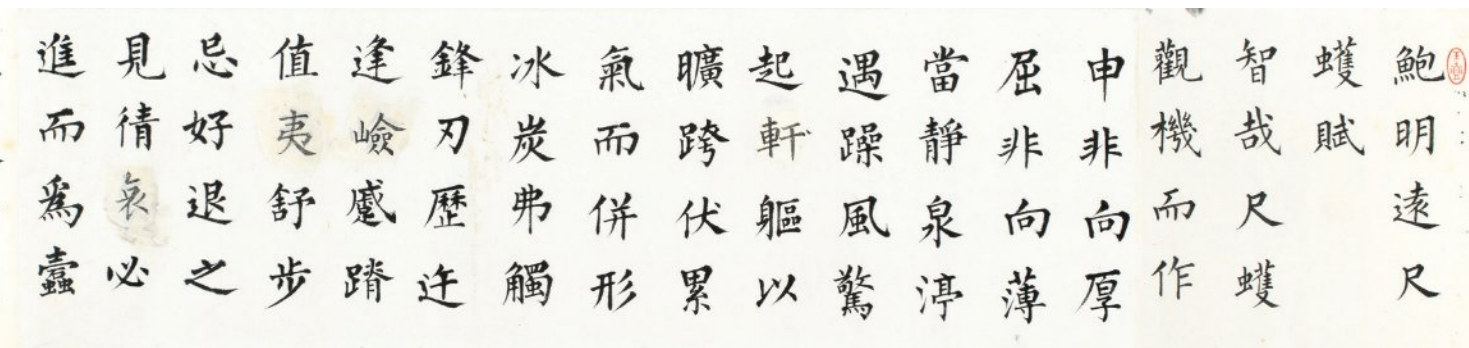 鮑明遠尺
蠖賦
智哉尺蠖
觀機而作
申非向厚
屈非向薄
當靜泉渟
遇躁風驚
起軒軀以
曠跨伏累
氣而併形
冰炭弗觸
鋒刃歷迕
逢嶮慼蹐
值夷舒步
忌好退之
見猜哀必
進而爲蠹